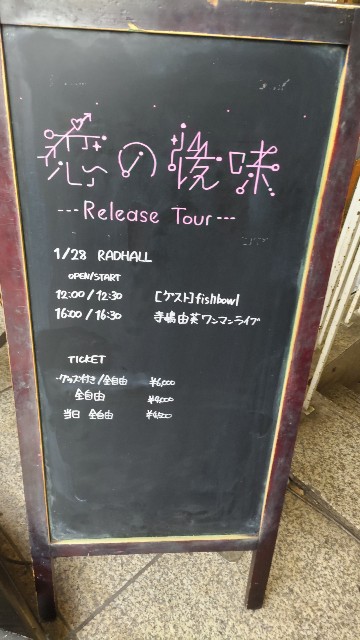 恋の後味
---Release Tour---
1/28 RADHALL
OPEN/START
12:00/12:30 [ゲスト]fishbowl
16:00/16:30 寺嶋由芙ワンマンライブ
TICKET
・グッズ付き/全自由 ¥6,000
全自由 ¥4,000
当日 全自由 ¥4,500